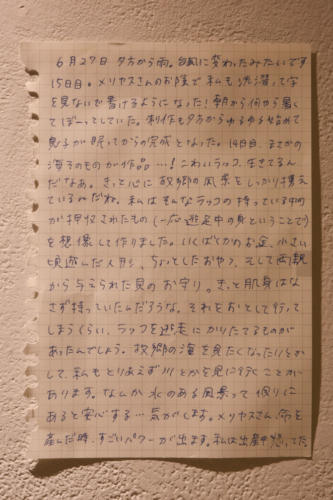 6月27日 夕方から雨。台風に変わったみたいです
15日目。メリヤスさんのお陰で私も洗濯って字
を見ないで書けるようになった！朝から何やら暑く
てぼーっとしていた。制作も夕方からゆるゆる始めて
息子が眠ってからの完成となった。14日目、まさかの
海子のものが作品…！こわいラック、生きてるん
だなあ。きっと心に故郷の風景をしっかり携え
ているんだね。私はそんなラックの持っている中の
が押収されたもの（一応逃走中の身ということで）
を想像して作りました。いくばくかのお金、小さい
頃遊んだ人形、ちょっとしたおやつ、そして両親
から与えられた貝のお守り。きっと肌身はな
さず持っていたんだろうな。それをおとして行って
しまうくらい、ラックを逃走にかりたてるものが
あったんでしょう。故郷の海を見たくなったりとか
して、私もとりあえず川とかを見に行くことが
あります。なんか水のある風景って周りに
あると安心する…気がします。メリヤスさん、命を
産んだ時、すごいパワーが出ます。私は出産中、